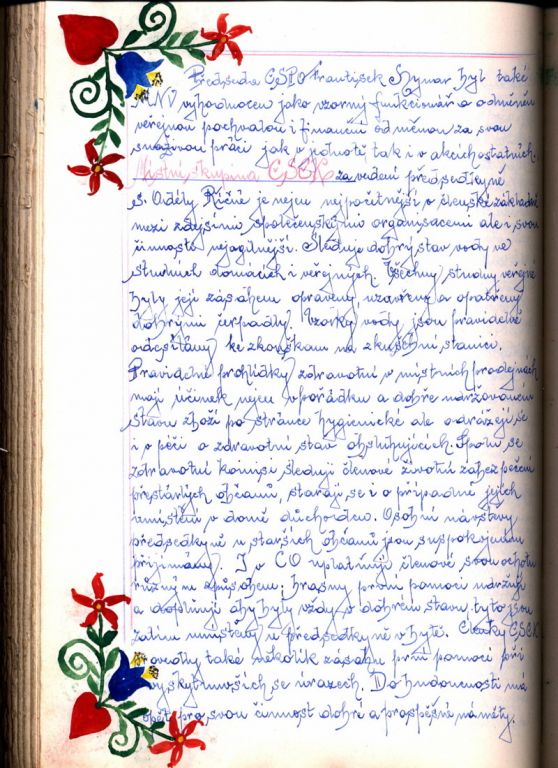 Předseda ČSPO František Hynar byl také
MNV vyhodnocen jako vzorný funkcionář a odměněn
veřejnou pochvalou i finanční odměnou za svou
snaživou práci jak v jednotě tak i v akcích ostatních.
Místní skupina ČSČK za vedení předsedkyně
s. Adély Říčné je nejen nejpočetnější v členské základně
mezi zdejšími společenskými organisacemi ale i svou
činností nejagilnější. Sleduje dobrý stav vody ve
studních domácích i veřejných. Všechny studny veřejné
byly její zásahem opraveny, uzavřeny a opatřeny
dobrými čerpadly. Vzorky vody jsou pravidelně
odesílány ke zkouškám na zkušební stanici.
Pravidelné prohlídky zdravotní v místních prodejnách
mají účinek nejen v pořádku a dobře udržovaném
stavu zboží po stránce hygienické ale odrážejí se
i v péči o zdravotní stav obsluhujících. Spolu se
zdravotní komisí sledují členové životní zabezpečení
přestárlých občanů, starají se i o případné jejich
umístění v domě důchodců. Osobní návštěvy
předsedkyně u starších občanů jsou s uspokojením
přijímány. I v CO uplatňují členové svou ochotu
různým způsobem: brašny první pomoci udržují
a doplňují aby byly vždy v dobrém stavu, tyto jsou
zatím umístěny u předsedkyně v bytě. Členky ČSČK
provedly také několik zásahů první pomoci při
vyskytnuvších se úrazech. Do budoucnosti má
opět pro svou činnost dobré a prospěšné náměty.